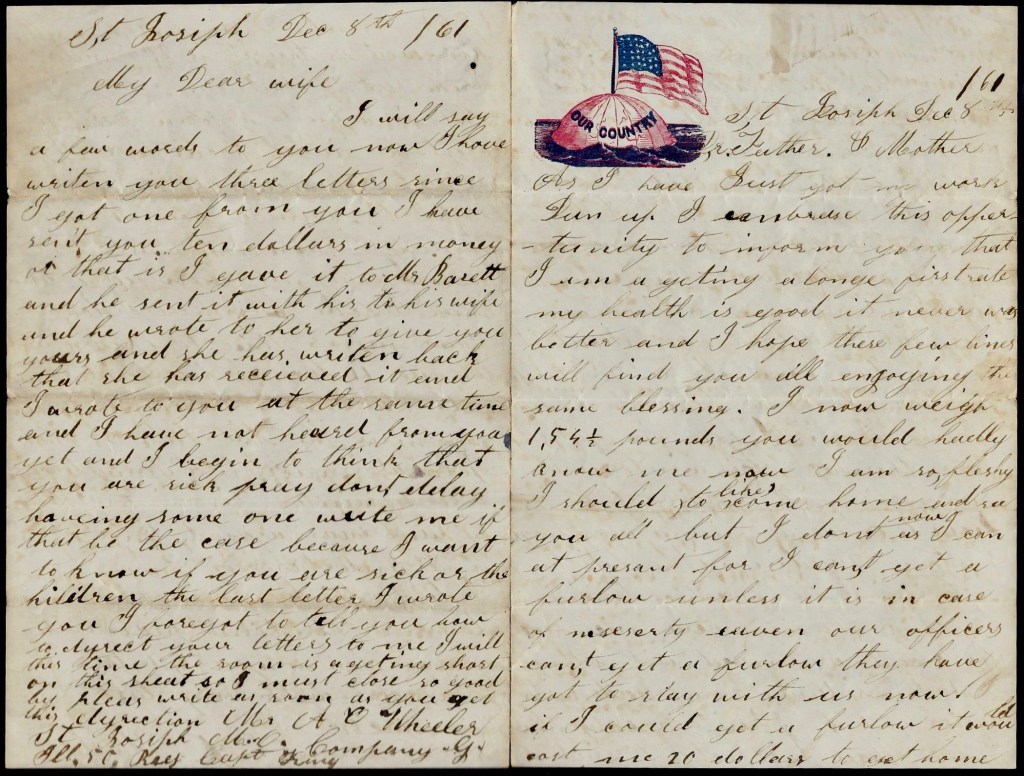 St Josiph Dec 8th /61
My Dear wife
I will say
a few words to you now I have
writen you three letters since
I got one from you I have
sent you ten dollars in money
or that is I gave it to Mr Barett
and he sent it with his to his wife
and he wrote to her to give you
yours and she has writen back
that she has receieved it and
I wrote to you at the same time
and I have not heard from you
yet and I begin to think that
you are sick pray dont delay
haveing some one write me if
that be the case because I want
to know if you are sick or the
hildren the last letter I wrote
you I foregot to tell you how
to dyrect your letters to me I will
this time the room is a geting short
on this sheat so I must close so good
by pleas write as soon as you get
this dyrection Mr A C Wheeler
St Josiph M.O. Company G.
Ill. 50, Reg Capt
OUR COUNTRY
/61
St Josiph Dec 8th
Father. & Mother
As I have Just got my work
Dun up I embrase this opper-
-tunity to inform you that
I am a geting alonge firstrate
my health is good it never was
better and I hope these few lines
will find you all engoying the
same blessing. I now weigh
1,54 1/2 pounds you would hadly
know me now I am so fleshy
I should like to come home and see
you all but I dont now as I can
at presant for I can,t get a
furlow unless it is in case
of neserty eaven our officers
can,t get a furlow they have
got to stay with us now
if I could get a furlow it would
cost me 20 dollars to get home